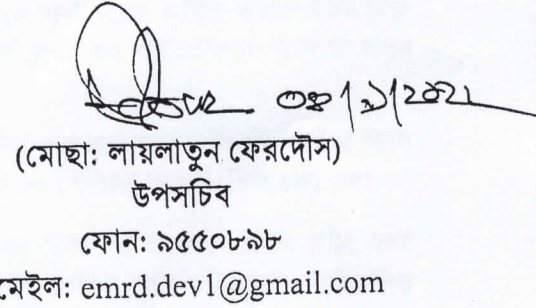 (মোছা: লায়লাতুন ফেরদৌস)
উপসচিব
ফোন: ৯৫৫০৮৯৮
মেইল: emrd.dev1@gmail.com